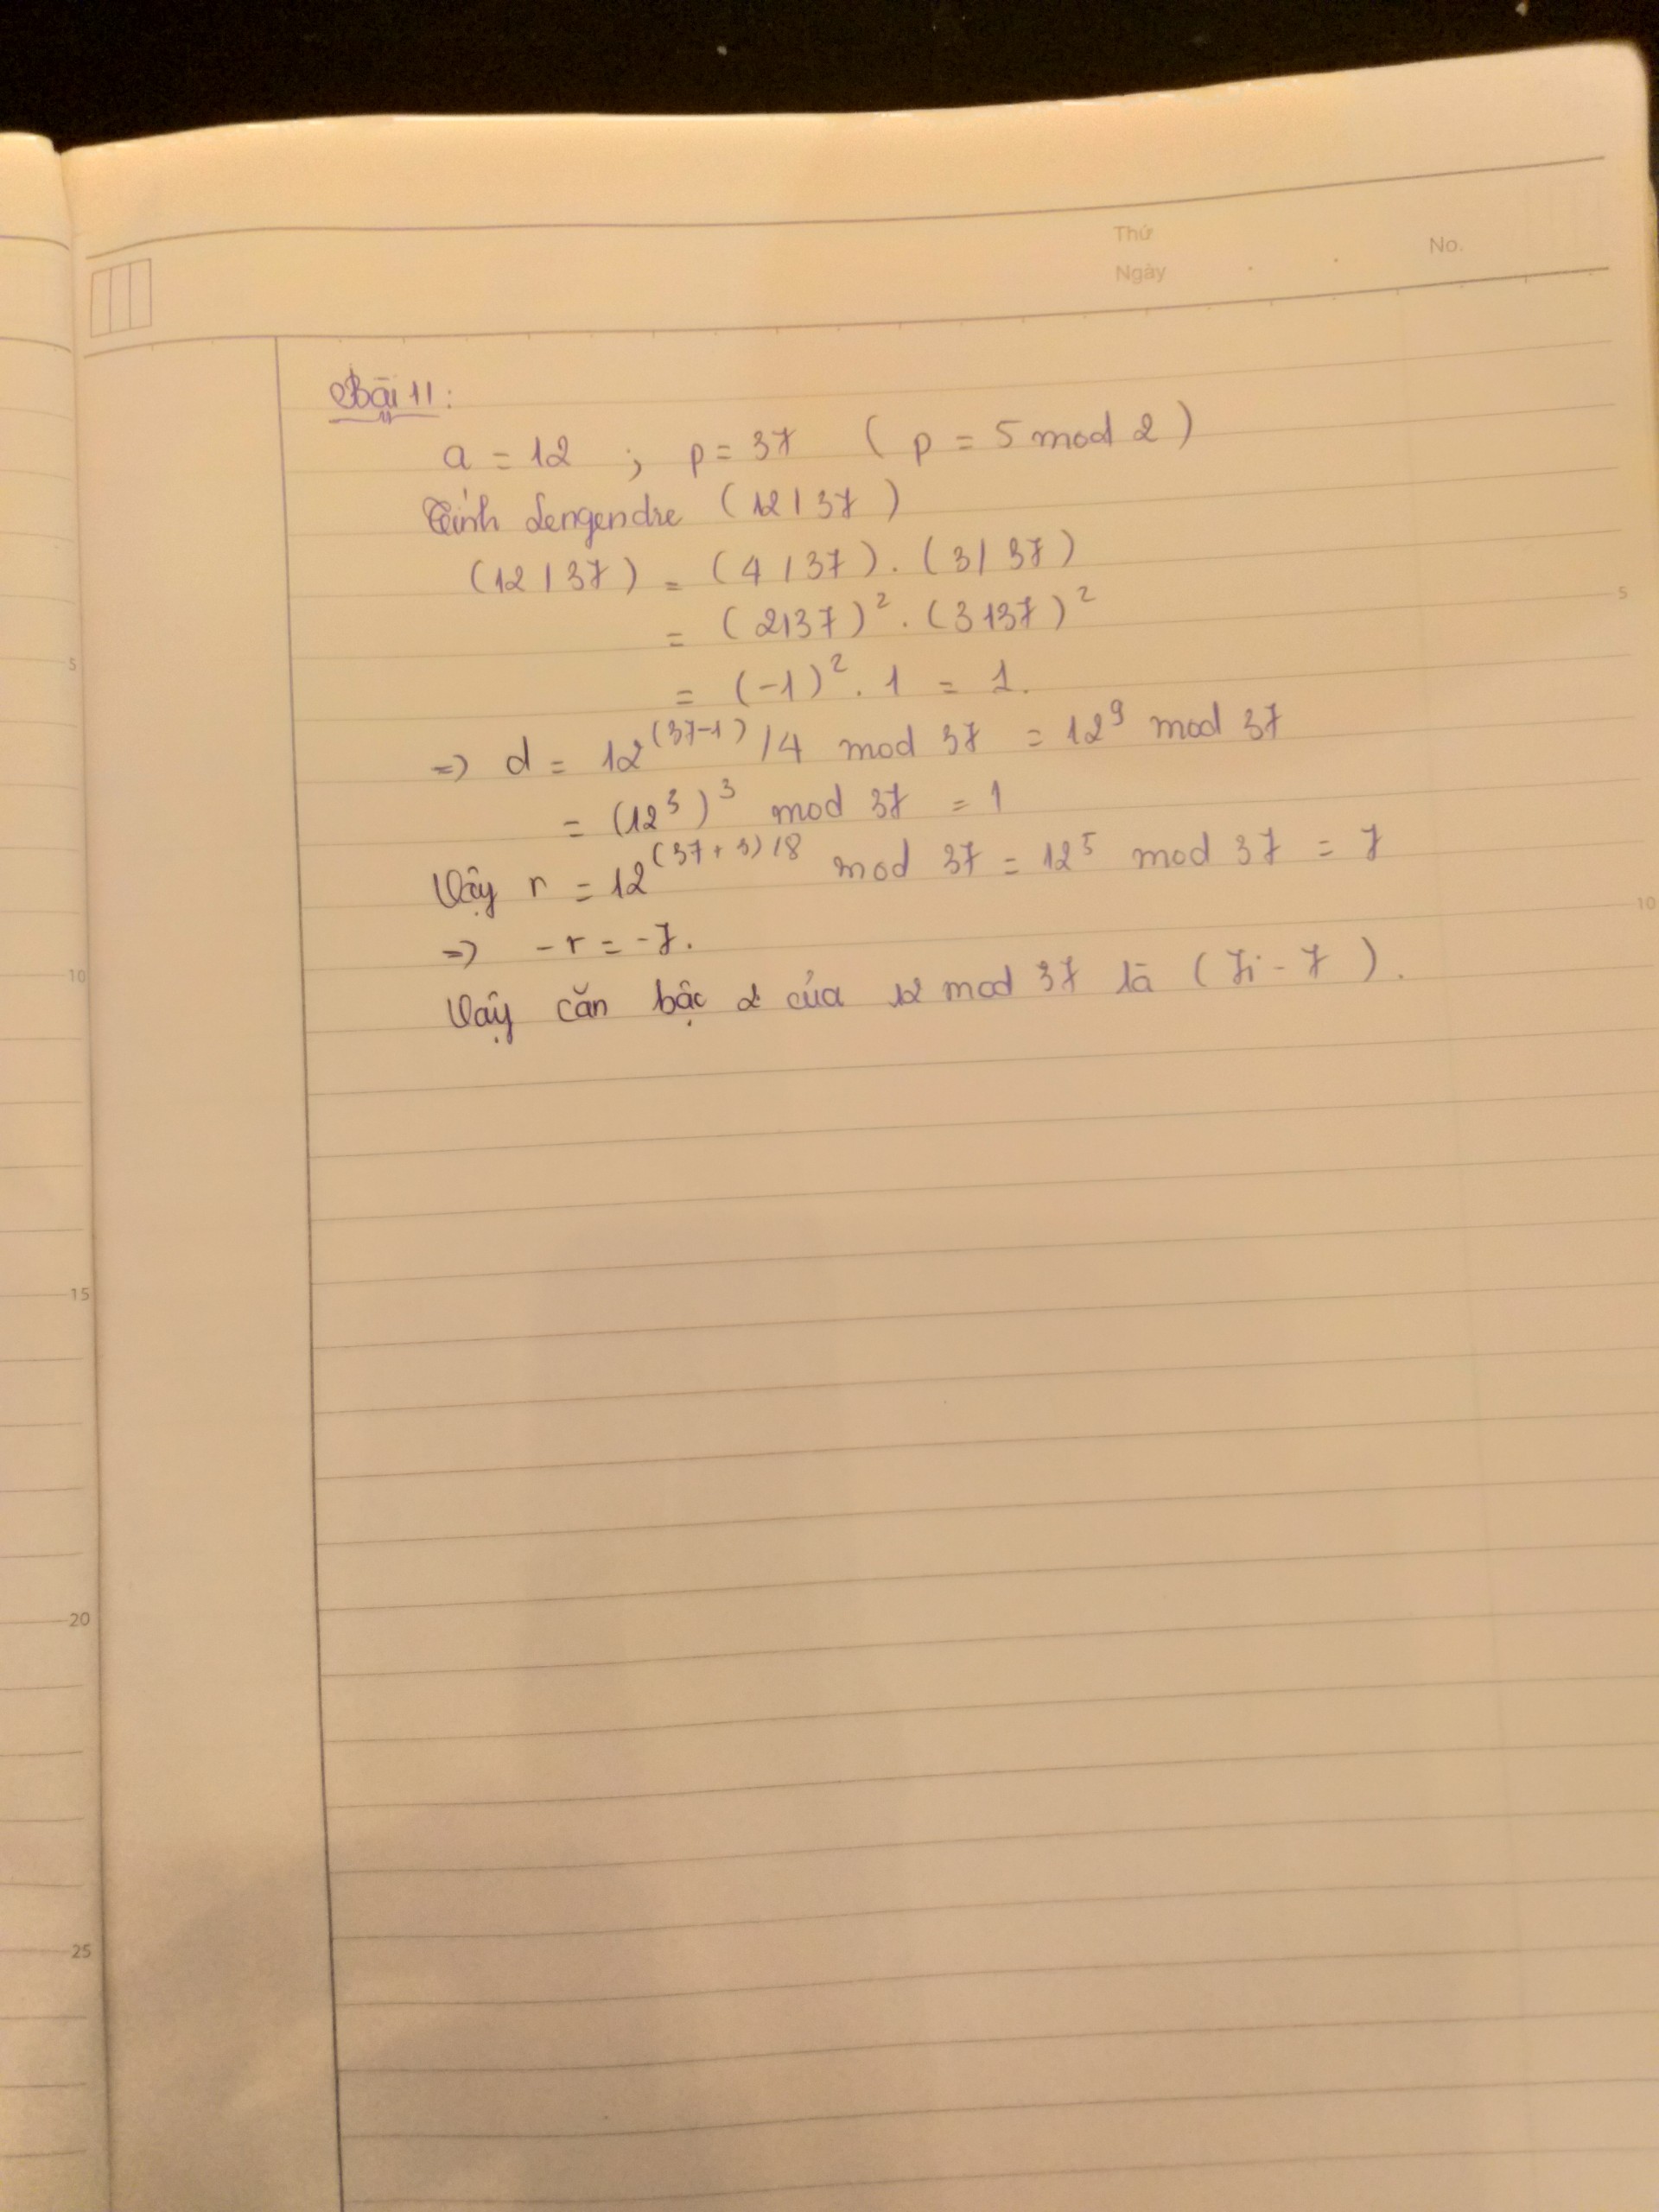 Thứ
Ngày
No.
Bài 11:
a = 12 ; p = 37 ( p = 5 mod 2 )
Tính Lengendre (12 | 37 )
(12 | 37 ) = (4 | 37 ) . (3 | 37)
= (2|37)² . (3|37)²
= (-1)² . 1 = 1.
=> d = 12^(37-1) /4 mod 37 = 12⁹ mod 37
= (12³)³ mod 37 = 1
Vậy r = 12^(37+3)/8 mod 37 = 12⁵ mod 37 = 7
=> -r = -7.
Vậy căn bậc 2 của 12 mod 37 là (7; -7 ).
5
10
15
20
25
5
10